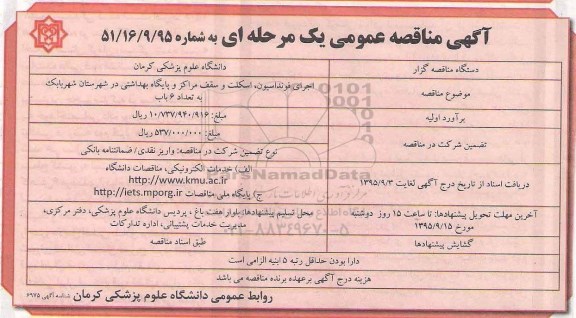 آگهی مناقصه عمومی یک مرحله ای به شماره ۵۱/۱۶/۹/۹۵
دستگاه مناقصه گزار
دانشگاه علوم پزشکی کرمان
موضوع مناقصه
اجرای فونداسیون، اسکلت و سقف مراکز و پایگاه بهداشتی در شهرستان شهربابک
به تعداد ۶ باب
برآورد اولیه
مبلغ: ۱۰/۷۳۷/۹۴۰/۹۱۶ ریال
تضمین شرکت در مناقصه
مبلغ: ۵۳۷/۰۰۰/۰۰۰ ریال
نوع تضمین شرکت در مناقصه: واریز نقدی/ ضمانتنامه بانکی
دریافت اسناد از تاریخ درج آگهی لغایت ۱۳۹۵/۹/۳
الف) خدمات الکترونیکی، مناقصات دانشگاه
http://www.kmu.ac.ir
ج) پایگاه ملی مناقصات http://iets.mporg.ir
آخرین مهلت تحویل پیشنهادها: تا ساعت ۱۵ روز دوشنبه
مورخ ۱۳۹۵/۹/۱۵
محل تسلیم پیشنهادها: بلوار هفت باغ ، پردیس دانشگاه علوم پزشکی، دفتر مرکزی،
مدیریت خدمات پشتیبانی، اداره تدارکات
گشایش پیشنهادها
طبق اسناد مناقصه
دارا بودن حداقل رتبه ۵ ابنیه الزامی است
هزینه درج آگهی برعهده برنده مناقصه می باشد
روابط عمومی دانشگاه علوم پزشکی کرمان
شناسه آگهی ۶۹۷۵
ParsNamadData